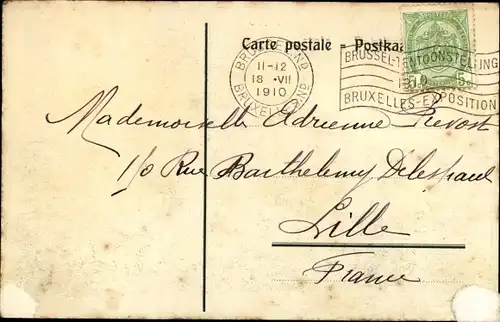 Carte postale = Postkaa
BRUSSEL.ND
11-12
18 · VII
1910
BRUXELLES.ND
BRUSSEL-TENTOONSTELLING
5
BRUXELLES-EXPOSITION
Mademoiselle Adrienne Prevost
110 Rue Barthelemy Delespaul
Lille
France